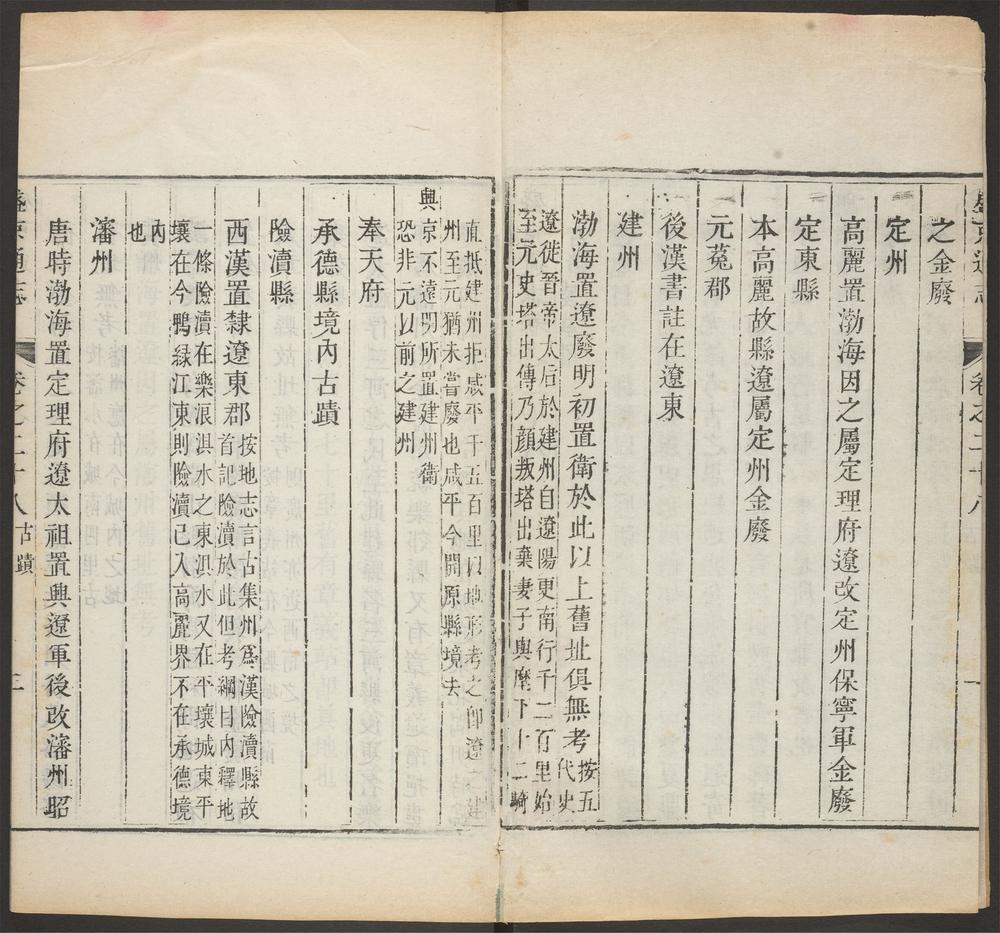 之金廢
定州
高麗置渤海因之屬定理府遼改定州保寧軍金廢
定東縣
本高麗故縣遼屬定州金廢
元菟郡
後漢書註在遼東
建州
渤海置遼廢明初置衛於此以上舊址俱無考按五代史
遼徙晉帝太后於建州自遼陽更南行千二百里始
至元史塔出傳乃顏叛塔出棄妻子與麾下十二騎
直抵建州拒咸平千五百里以地形考之卽遼之建
州至元猶未嘗廢也咸平今開原縣境去
興京不遠明所置建州衛
恐非元以前之建州
奉天府
承德縣境內古蹟
險瀆縣
西漢置隸遼東郡按地志言古集州爲漢險瀆縣故
首記險瀆於此但考綱目內釋地
一條險瀆在樂浪浿水之東浿水又在平壤城東平
壤在今鴨綠江東則險瀆已入高麗界不在承德境
內也
瀋州
唐時渤海置定理府遼太祖置興遼軍後改瀋州昭
盛京通志
卷之二十八
古蹟
三